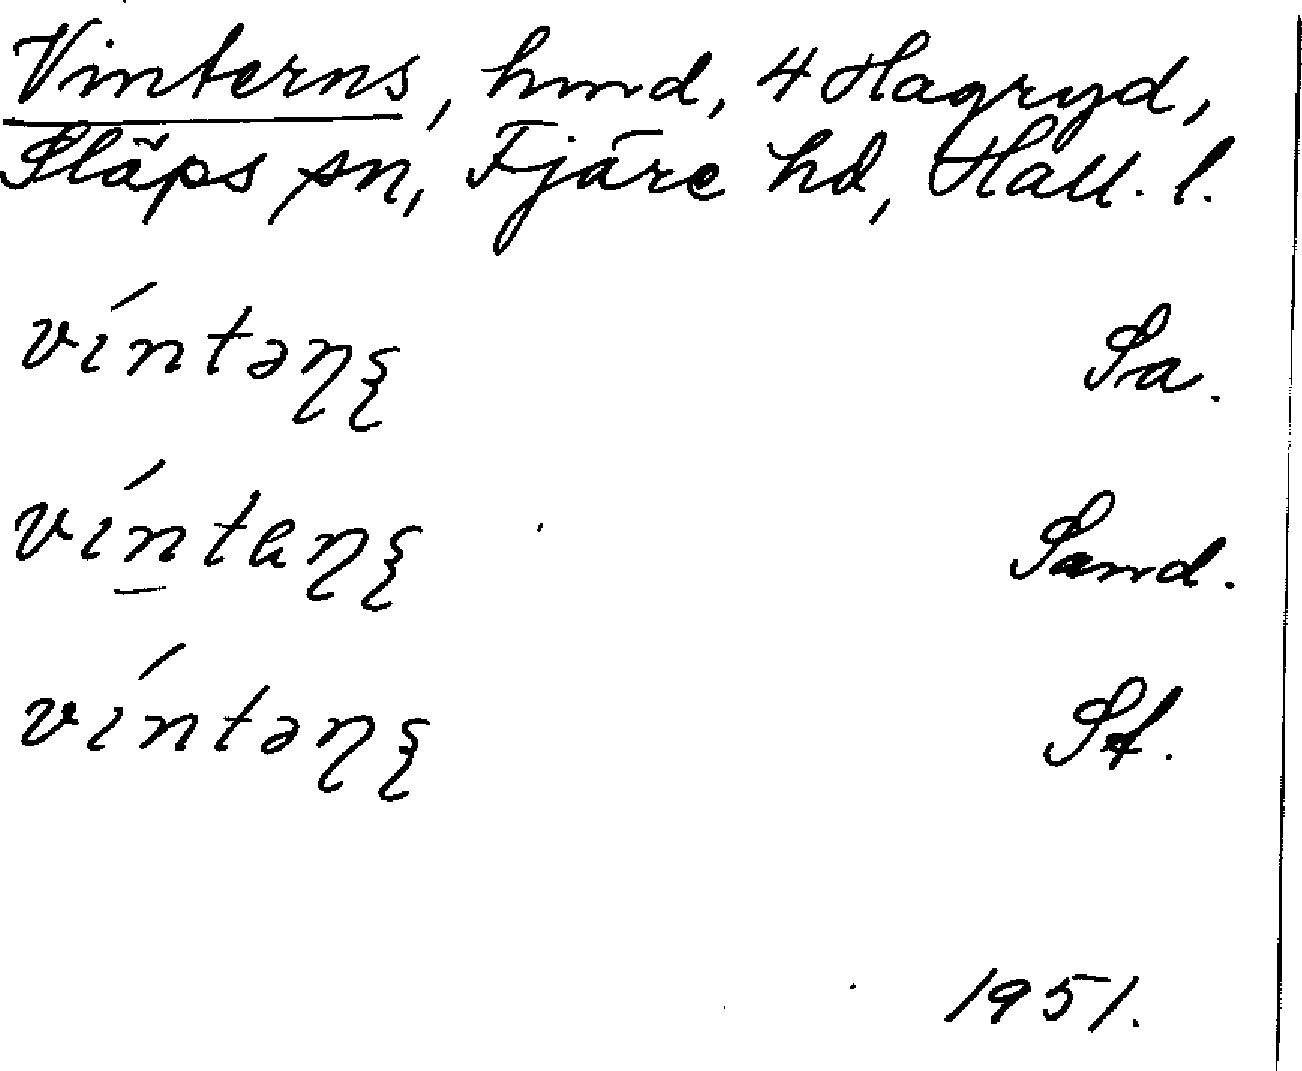 Vinterns, hmd, 4 Hagryd,
Släps sn, Fjäre hd, Hall. l.
víntəɳʂ Sa.
víntaɳʂ Sand.
víntəɳʂ St.
1951.